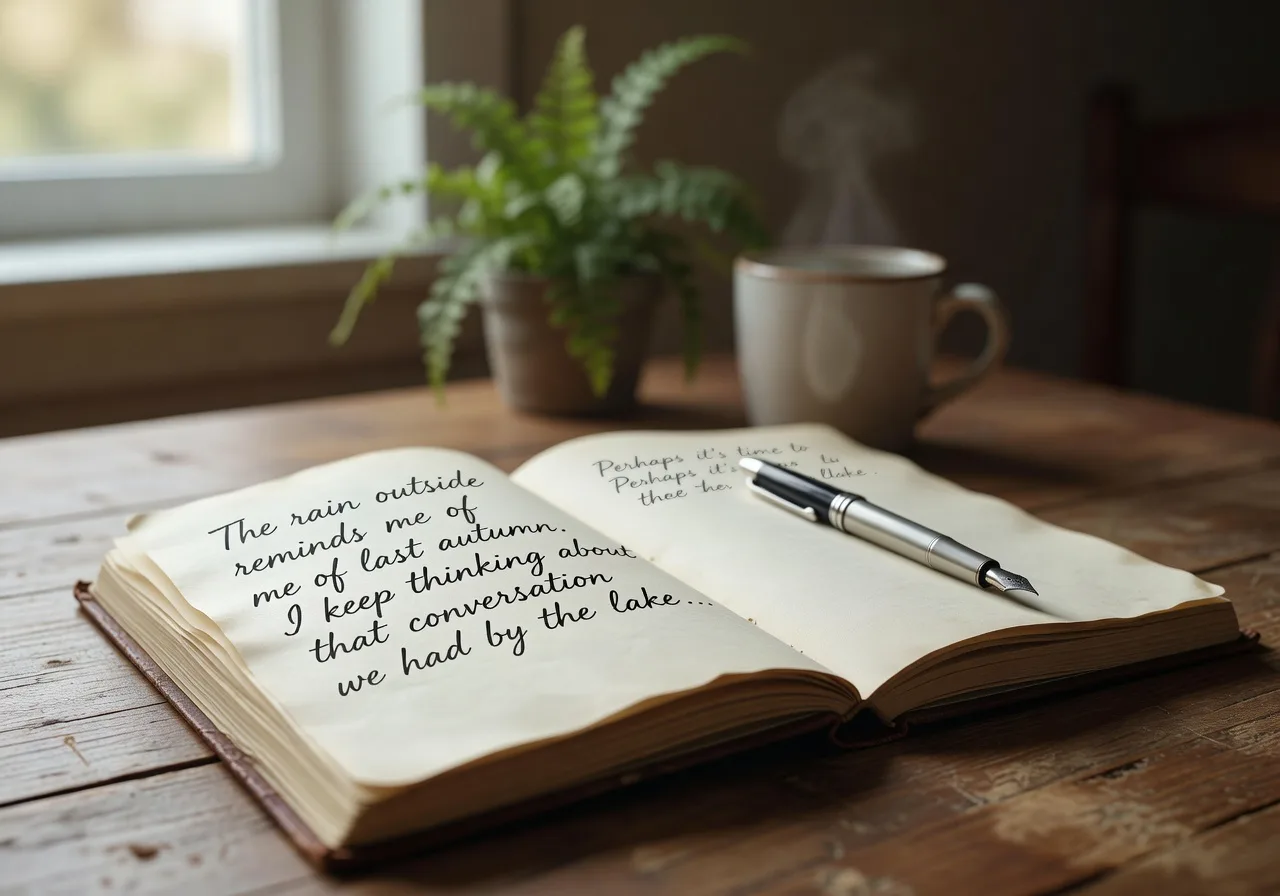 The rain outside
reminds me of
me of last autumn.
I keep thinking about
that conversation
we had by the lake...
Perhaps it's time to
Perhaps it's
thee her